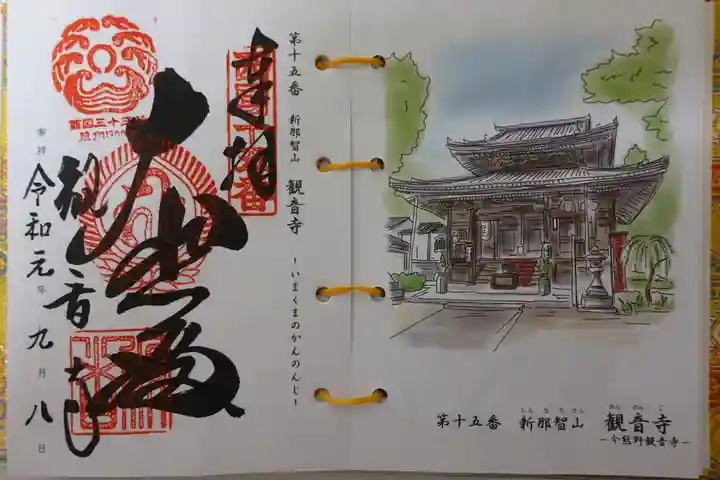 第十五番 新那智山 観音寺
-いまくまのかんのんじ-
奉拝
大悲殿
観音寺
奉拝 令和元年九月八日
西国三十三所
第十五番 新那智山 観音寺
しんなちさん かんのんじ
-今熊野観音寺-